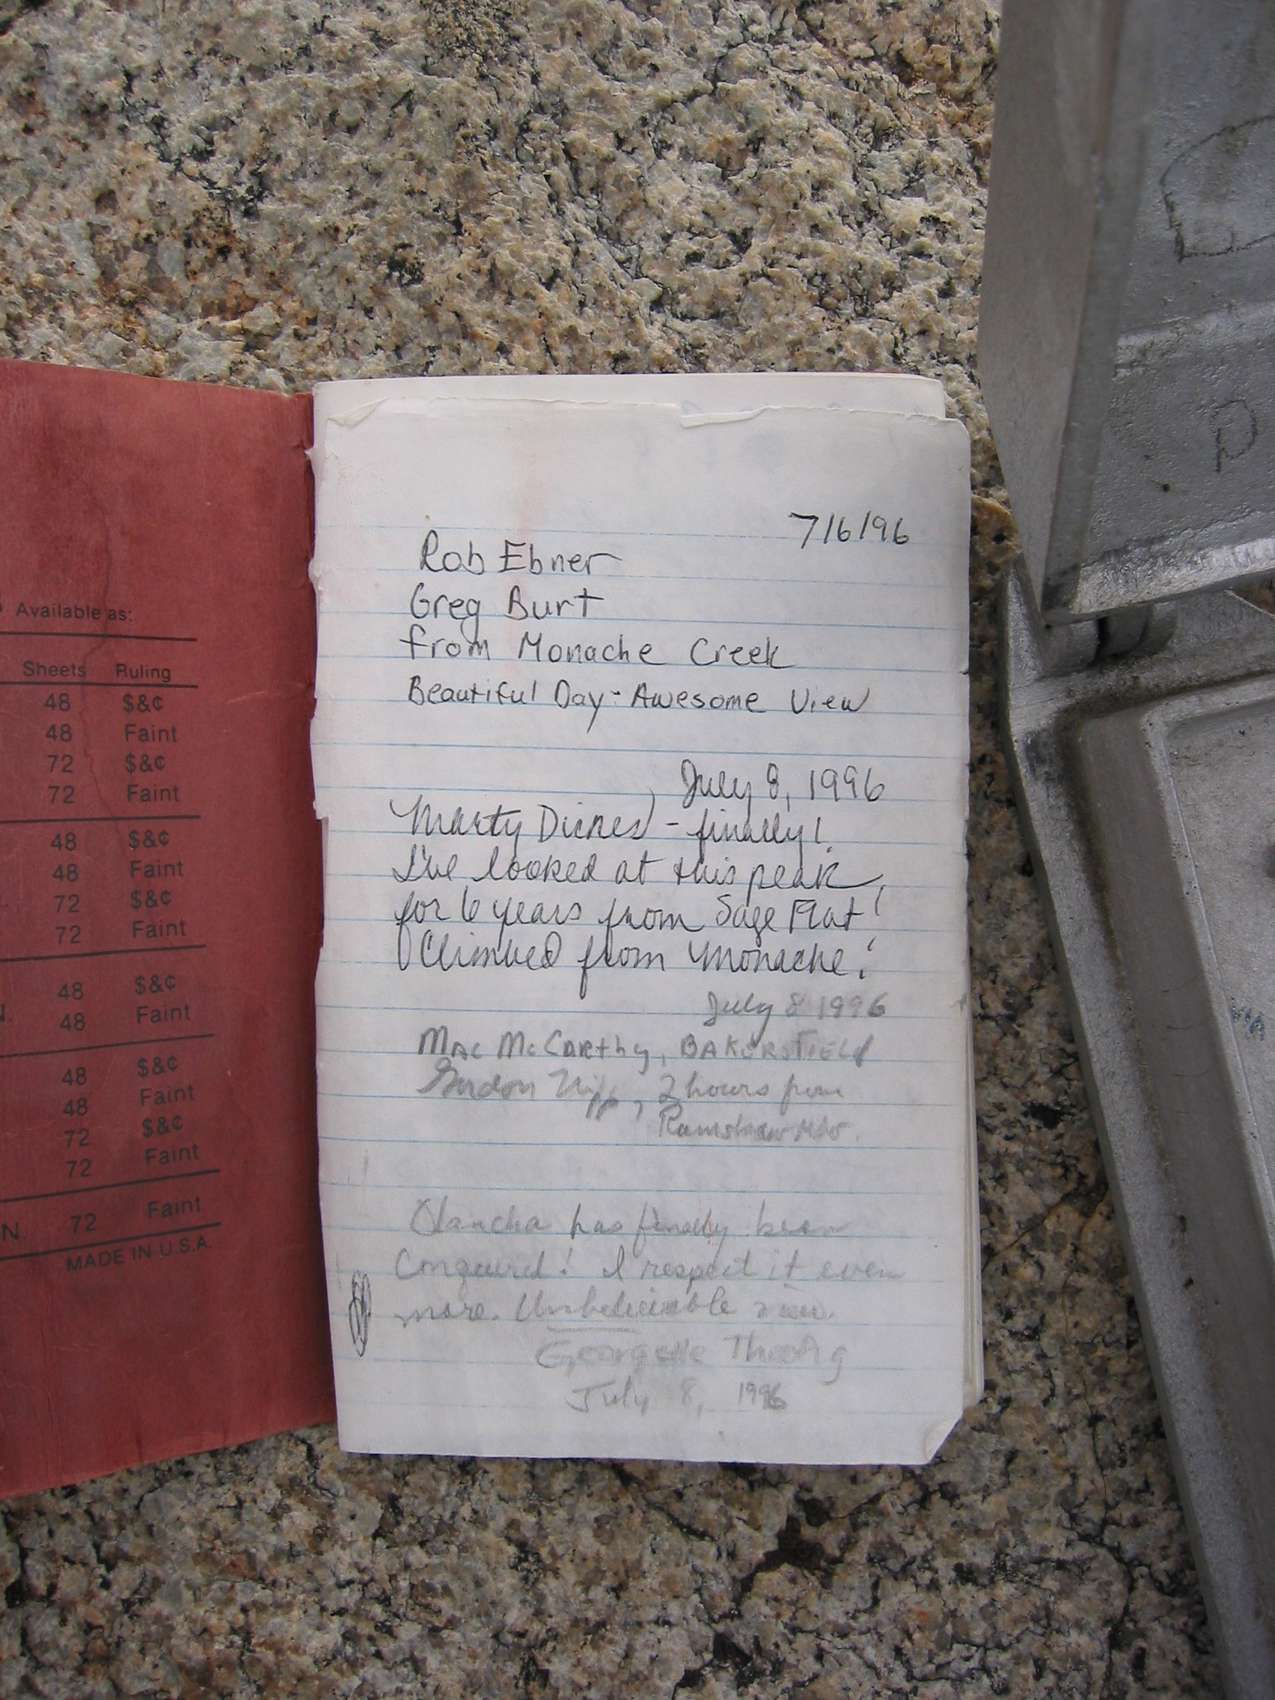 Available as:
Sheets Ruling
48 $&¢
48 Faint
72 $&¢
72 Faint
48 $&¢
48 Faint
72 $&¢
72 Faint
48 $&¢
N. 48 Faint
48 $&¢
48 Faint
72 $&¢
72 Faint
N. 72 Faint
MADE IN U.S.A.
7/6/96
Rob Ebner
Greg Burt
from Monache Creek
Beautiful Day - Awesome View
July 8, 1996
Marty Dickes - finally!
I've looked at this peak
for 6 years from Sage Flat!
Climbed from Monache!
July 8 1996
Mac McCarthy, BAKERSFIELD
2 hours from
Ramshaw Mdw.
Olancha has finally been
Conquered! I respect it even
more. Unbelievable view.
Georgette
July 8, 1996